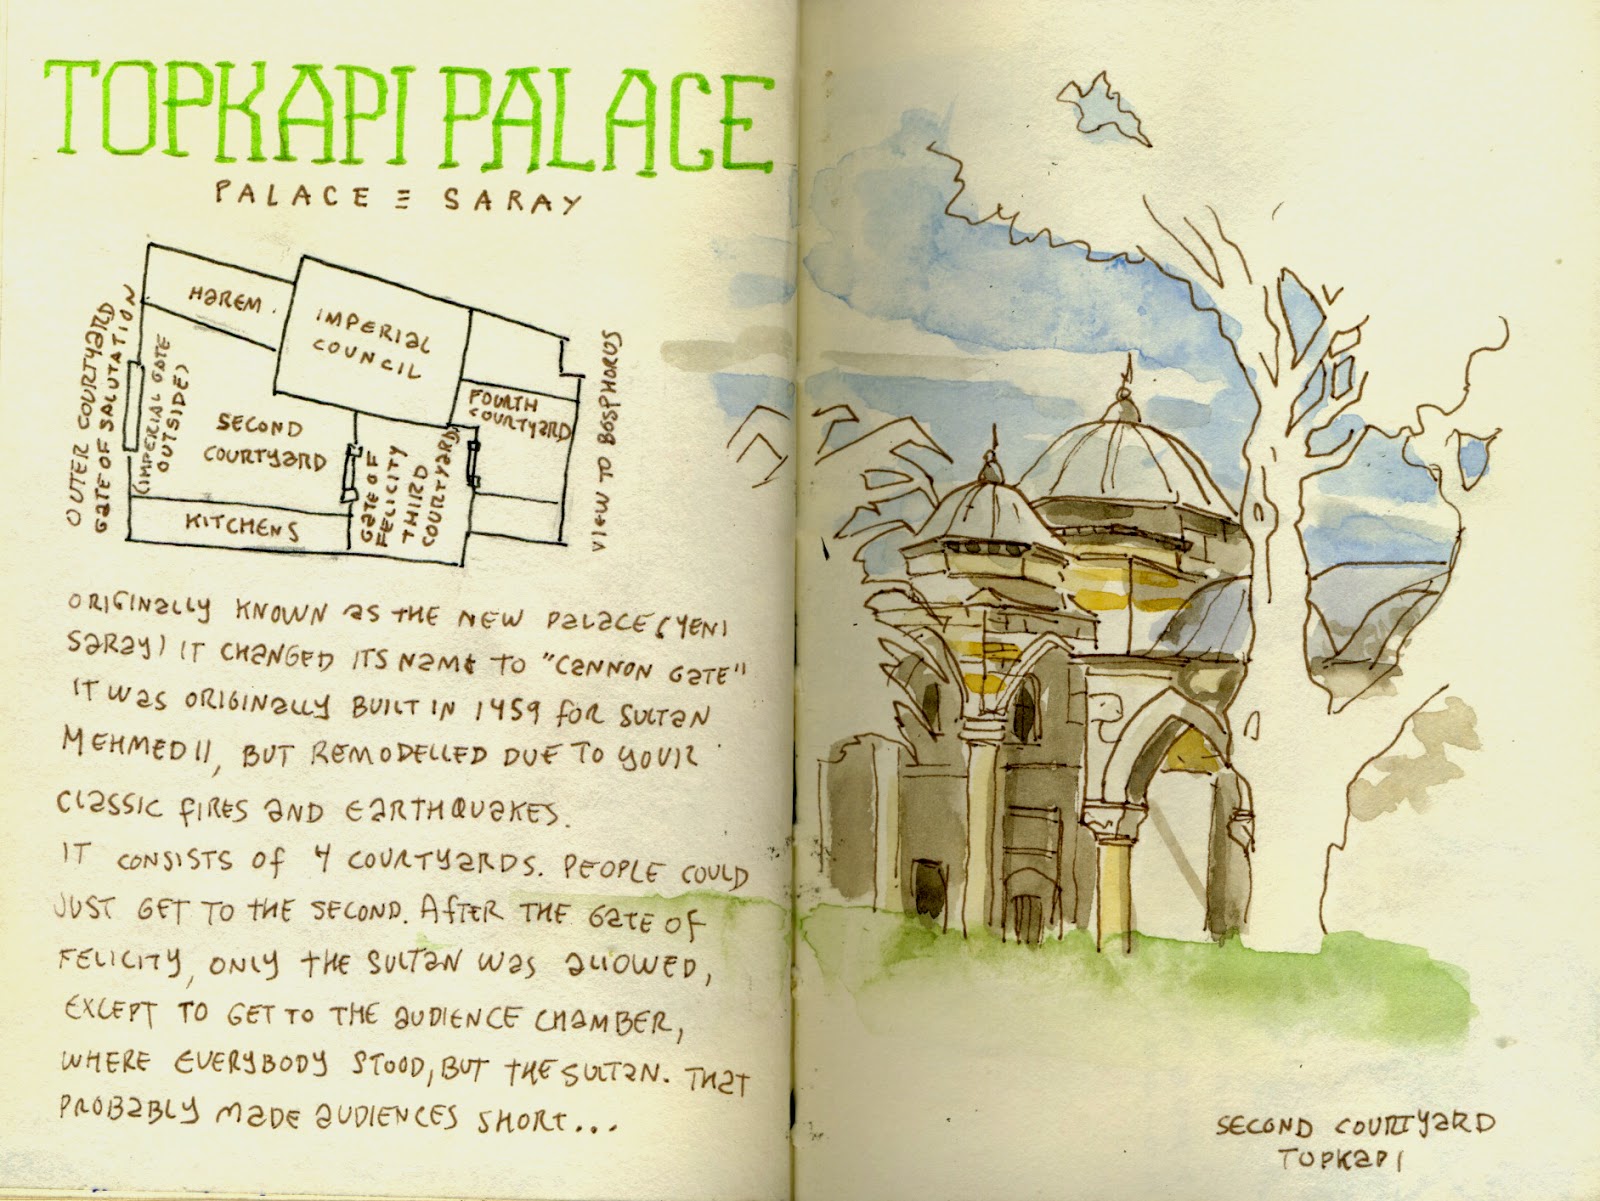 TOPKAPI PALACE
PALACE ≡ SARAY
HAREM.
IMPERIAL
COUNCIL
OUTER COURTYARD
GATE OF SALUTATION
(IMPERIAL GATE
OUTSIDE)
SECOND
COURTYARD
GATE OF
FELICITY
THIRD
COURTYARD
FOURTH
COURTYARD
VIEW TO BOSPHORUS
KITCHENS
ORIGINALLY KNOWN AS THE NEW PALACE (YENI
SARAY) IT CHANGED ITS NAME TO "CANNON GATE"
IT WAS ORIGINALLY BUILT IN 1459 FOR SULTAN
MEHMED II, BUT REMODELLED DUE TO YOUR
CLASSIC FIRES AND EARTHQUAKES.
IT CONSISTS OF 4 COURTYARDS. PEOPLE COULD
JUST GET TO THE SECOND. AFTER THE GATE OF
FELICITY, ONLY THE SULTAN WAS ALLOWED,
EXCEPT TO GET TO THE AUDIENCE CHAMBER,
WHERE EVERYBODY STOOD, BUT THE SULTAN. THAT
PROBABLY MADE AUDIENCES SHORT...
SECOND COURTYARD
TOPKAPI